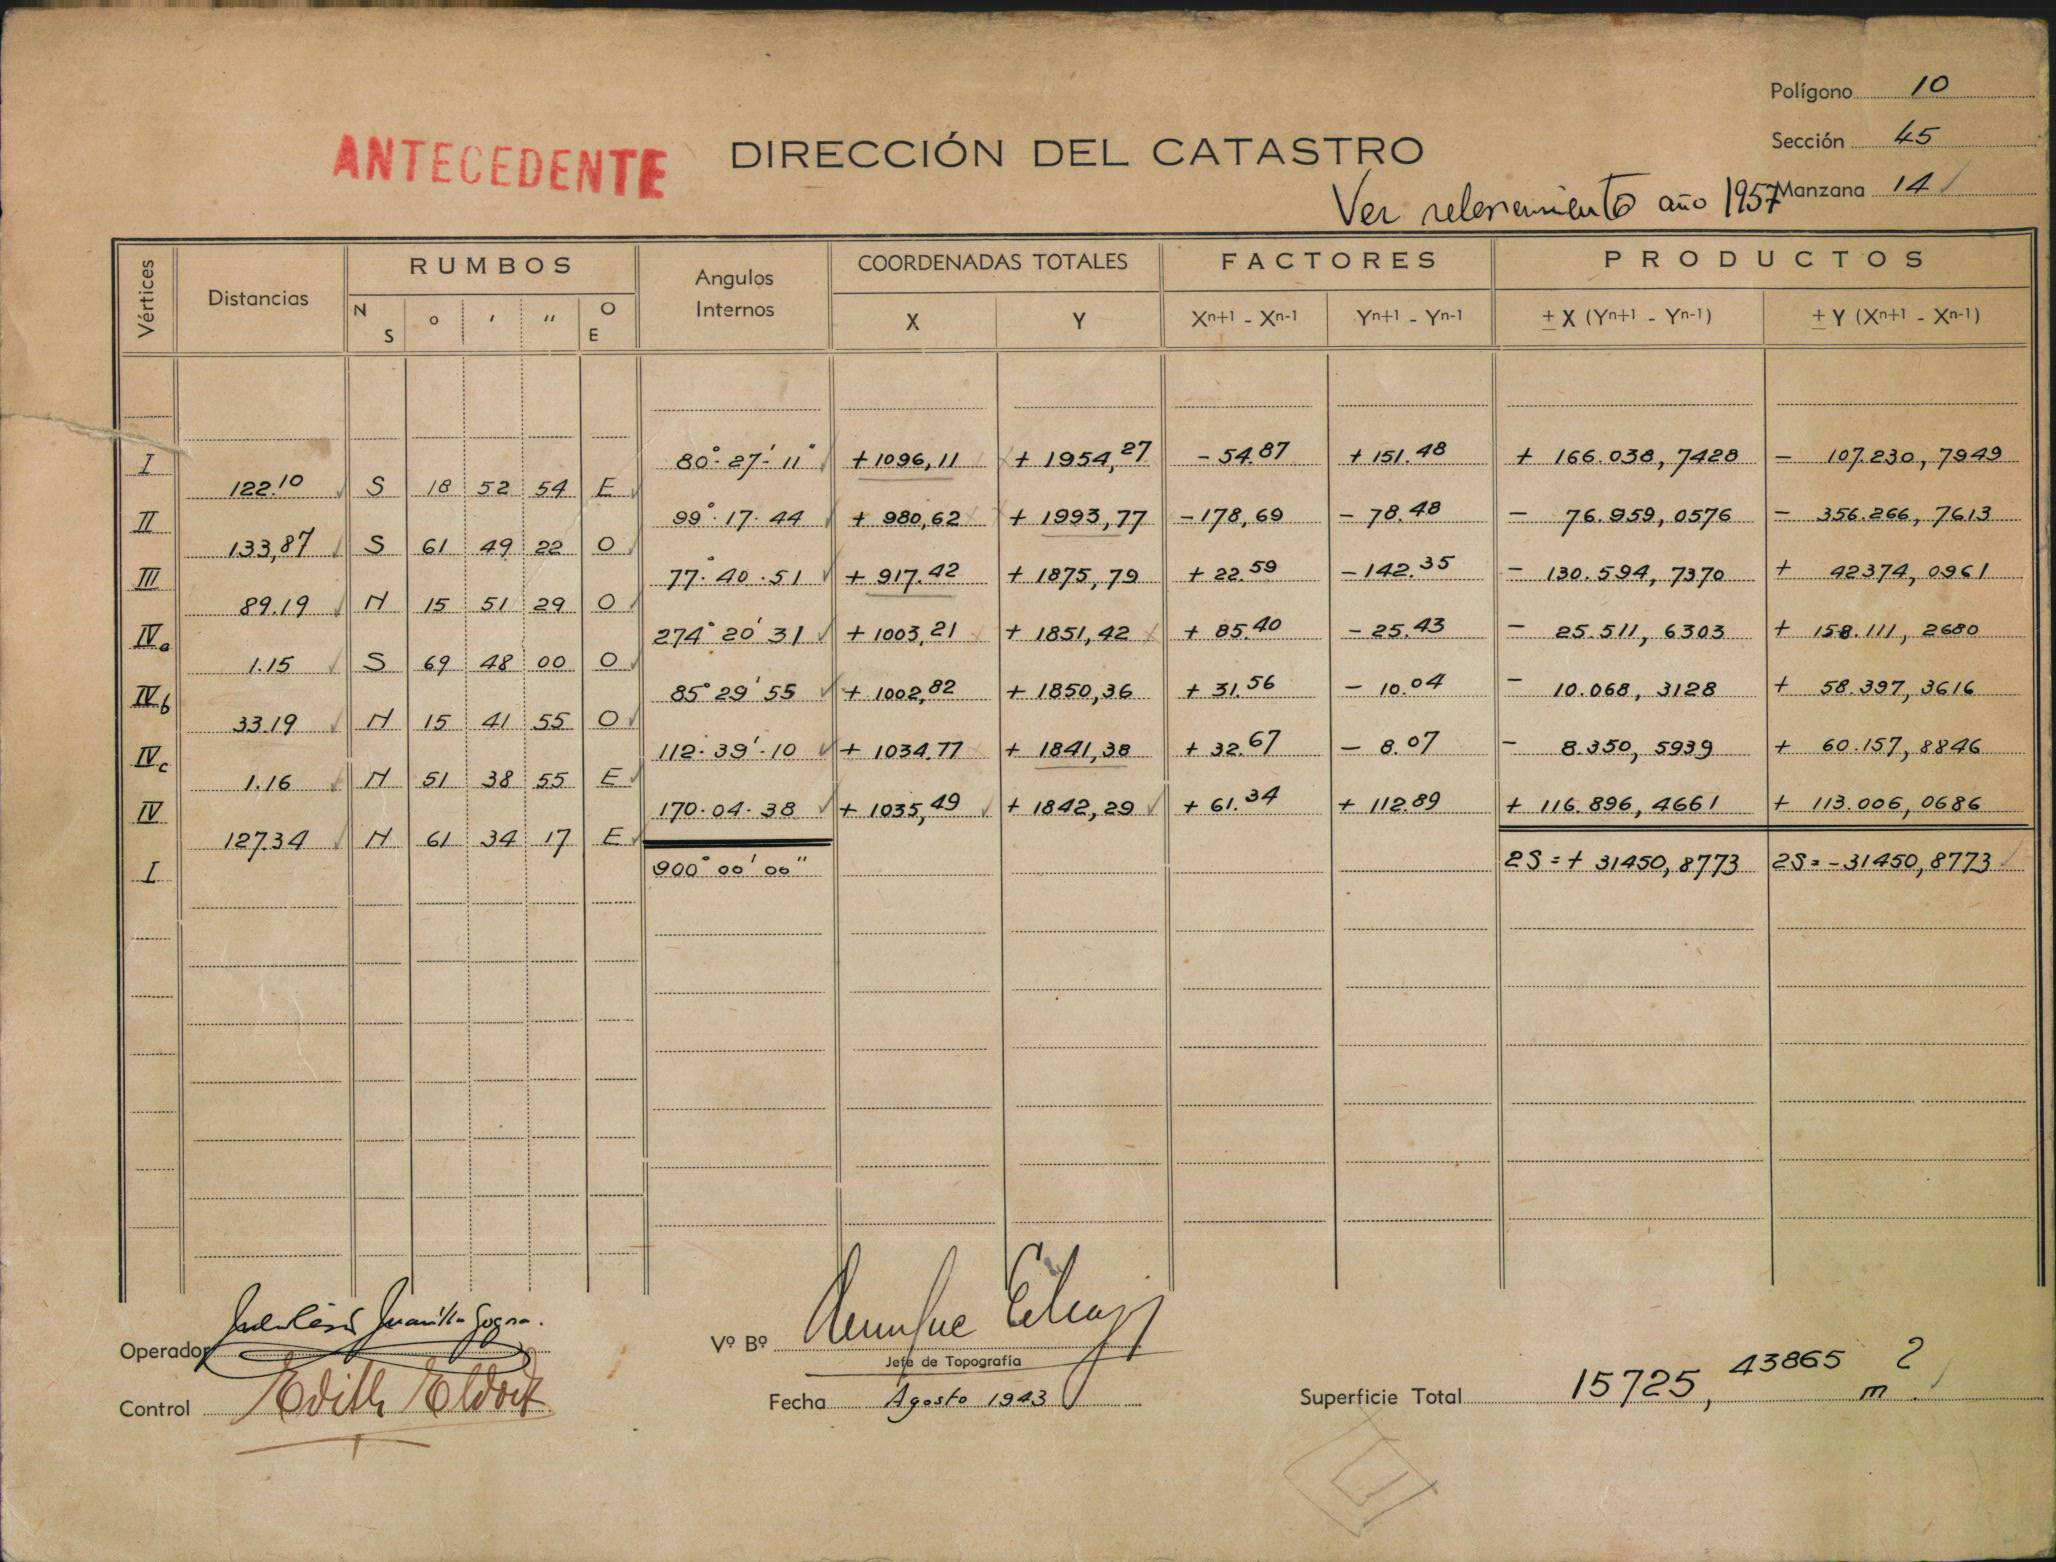 Polígono 10
ANTECEDENTE DIRECCIÓN DEL CATASTRO
Sección 45
Manzana 14
Ver relevamiento año 1957
Vértices Distancias RUMBOS Angulos Internos COORDENADAS TOTALES FACTORES PRODUCTOS
N S ° ' " O E X Y Xn+1 - Xn-1 Yn+1 - Yn-1 ± X (Yn+1 - Yn-1) ± Y (Xn+1 - Xn-1)
I 80°-27'-11" +1096,11 + 1954,27 - 54.87 + 151.48 + 166.038, 7428 - 107.230, 7949
122.10 S 18 52 54 E
II 99°.17.44 + 980,62 + 1993,77 - 178,69 - 78.48 - 76.959, 0576 - 356.266, 7613
133,87 S 61 49 22 O
III 77°.40.51 + 917.42 + 1875,79 + 22.59 - 142.35 - 130.594, 7370 + 42374, 0961
89.19 N 15 51 29 O
IVa 274° 20' 31 + 1003,21 + 1851,42 + 85.40 - 25.43 - 25.511, 6303 + 158.111, 2680
1.15 S 69 48 00 O
IVb 85° 29' 55 + 1002,82 + 1850,36 + 31.56 - 10.04 - 10.068, 3128 + 58.397, 3616
33.19 N 15 41 55 O
IVc 112-39'-10 + 1034.77 + 1841,38 + 32.67 - 8.07 - 8.350, 5939 + 60.157, 8846
1.16 N 51 38 55 E
IV 170-04-38 + 1035,49 + 1842,29 + 61.34 + 112.89 + 116.896, 4661 + 113.006, 0686
127.34 N 61 34 17 E
I 900° 00' 00" 2S = + 31450,8773 2S = - 31450,8773
Operador
Vº Bº
Jefe de Topografía
Control Edith
Fecha Agosto 1943
Superficie Total 15725,43865 m2